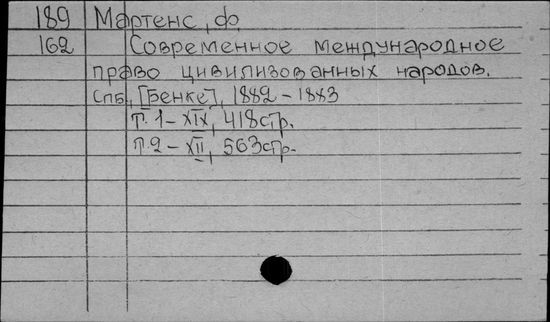 189 Мартенс, Ф.
162 Современное международное
право цивилизованных народов.
Спб, [Бенке], 1882-1883
т. 1 - XIX, 418стр.
т. 2 - XII, 563стр.